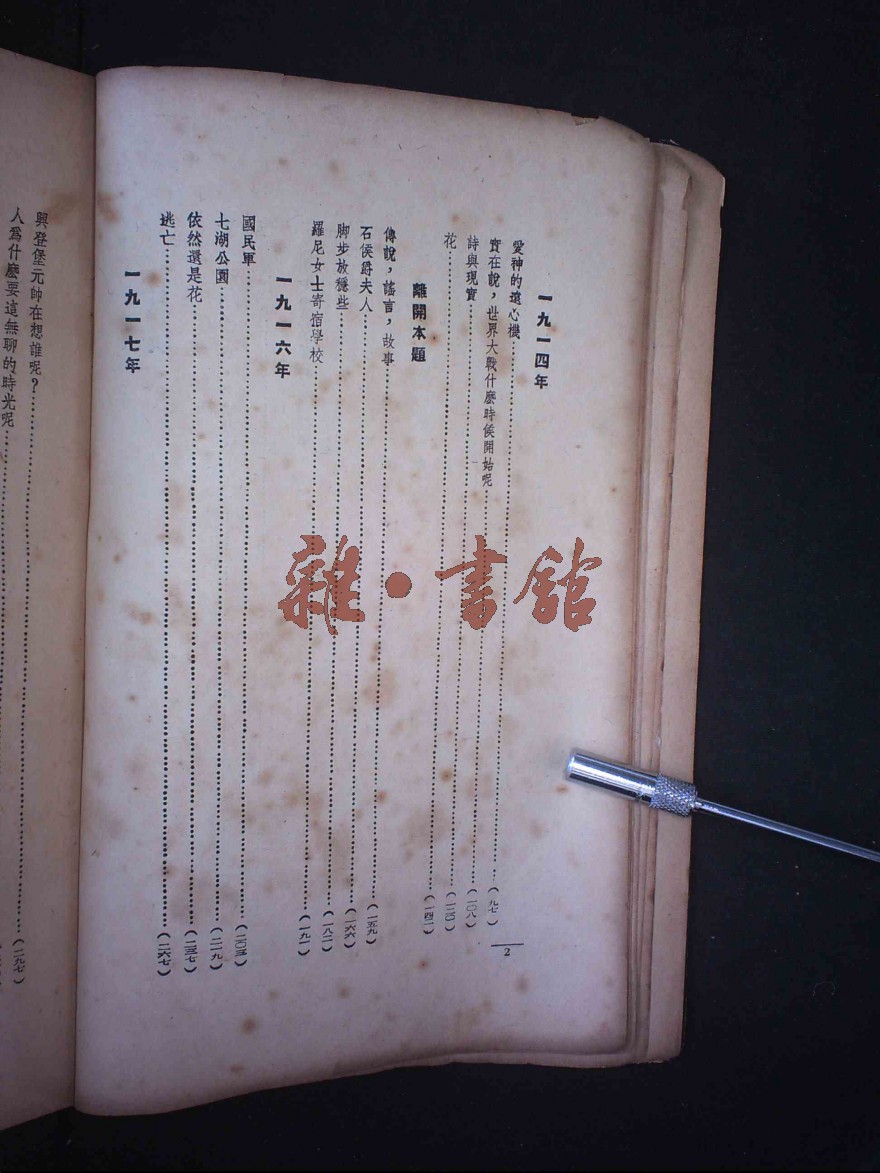 一九一四年
愛神的遠心機……(九七)
實在說，世界大戰什麽時候開始呢……(一〇八)
詩與現實……(一二〇)
花……(一四一)
離開本題
傳說，謠言，故事……(一五九)
石侯爵夫人……(一六六)
脚步放穩些……(一八二)
羅尼女士寄宿學校……(一九一)
一九一六年
國民軍……(二〇五)
七湖公園……(二一九)
依然還是花……(二三七)
逃亡……(二六七)
一九一七年
2
興登堡元帥在想誰呢？……(二九七)
人爲什麽要這無聊的時光呢……
雜·書館